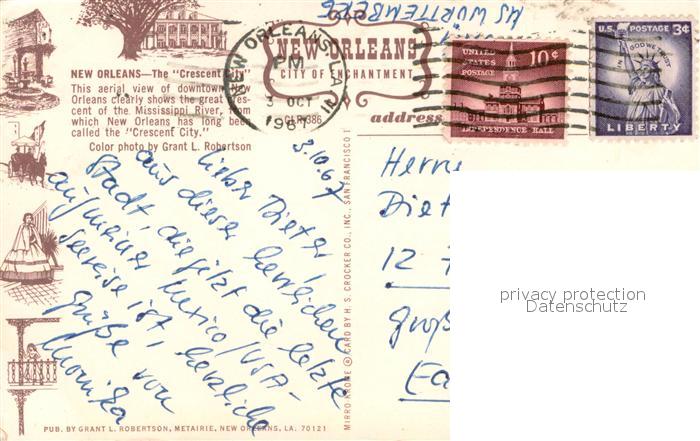 NEW ORLEANS—The "Crescent City"
This aerial view of downtown
Orleans clearly shows the great
cent of the Mississippi River, from
which New Orleans has long been
called the "Crescent City."
Color photo by Grant L. Robertson
NEW ORLEANS
CITY OF ENCHANTMENT
GLR386
address
NEW ORLEANS, LA
PM
3 OCT
1967
WÜRTTEMBERG
UNITED STATES POSTAGE
10¢
INDEPENDENCE HALL
U.S. POSTAGE 3¢
IN GOD WE TRUST
LIBERTY
3.10.67
Lieber Dieter,
aus dieser herrlichen
Stadt, die jetzt die letzte
auf meiner Mexico/USA-
Seereise ist, herzliche
Grüße von
Monika
Herrn
Diet
12
Groß
MIRRO KROME ® CARD BY H. S. CROCKER CO., INC., SAN FRANCISCO 1
PUB. BY GRANT L. ROBERTSON, METAIRIE, NEW ORLEANS, LA. 70121
privacy protection
Datenschutz